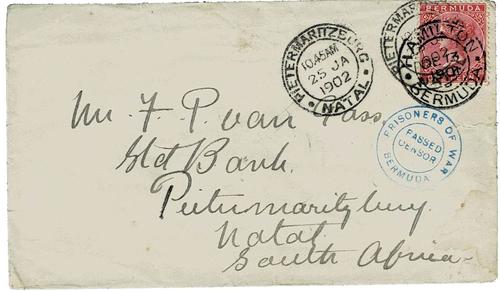 PIETERMARITZBURG
10.45AM
25 JA
1902
NATAL
BERMUDA
HAMILTON
BERMUDA
Mr F. P. van Gass
Std Bank.
Pietermaritzburg
Natal
South Africa
PRISONERS OF WAR
PASSED
CENSOR
BERMUDA